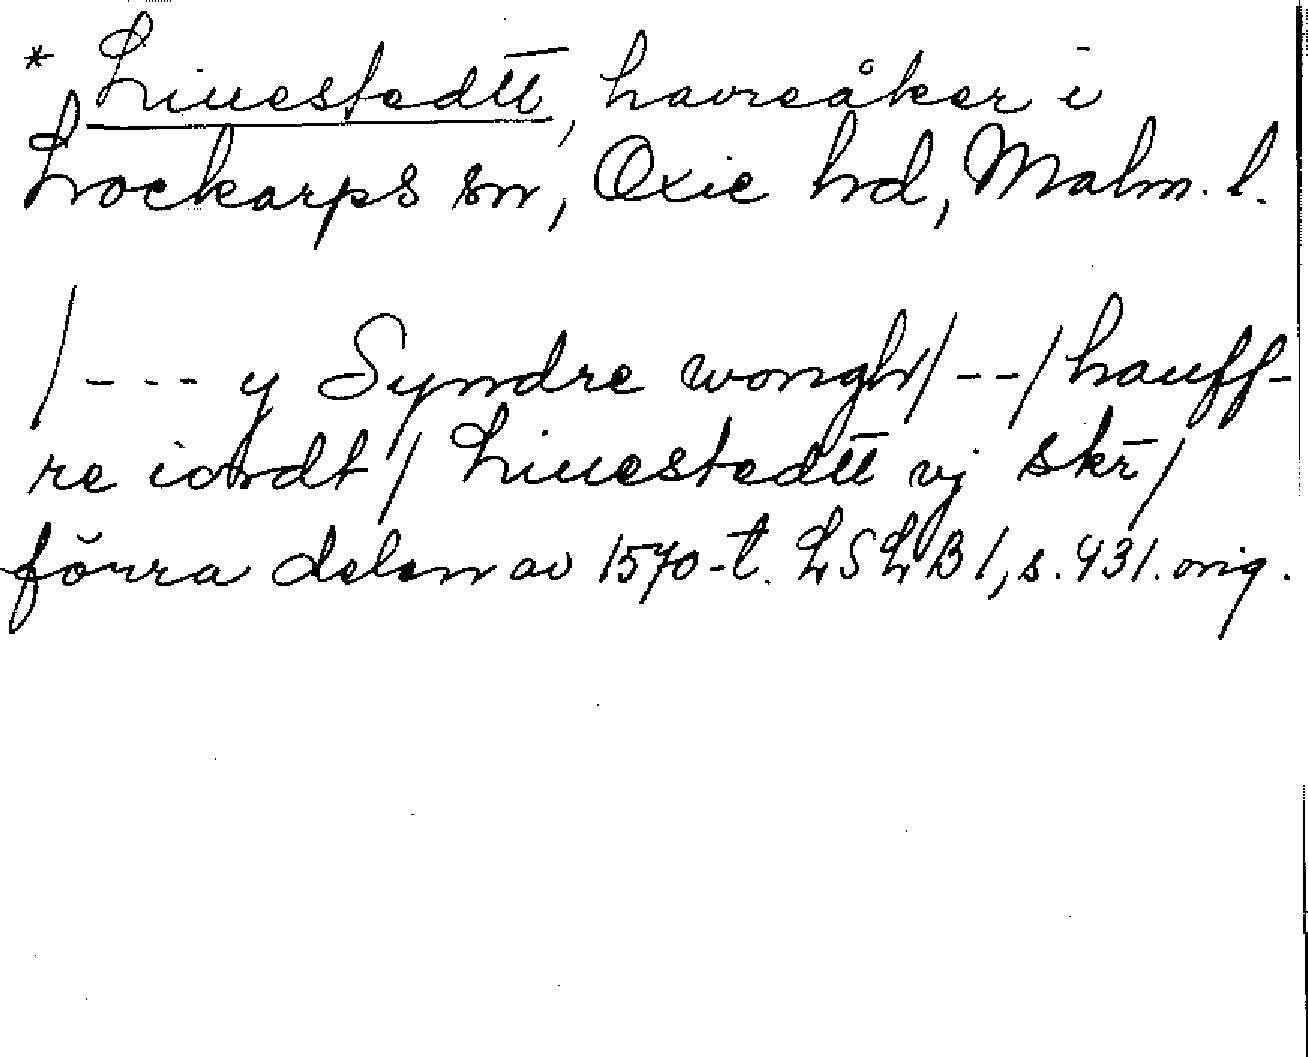 * Liuestedtt, havreåker i
Lockarps sn, Oxie hd, Malm. l.
/--- y Syndre wongh/--/hauff-
re iordt / Liuestedtt vj skr /
förra delen av 1570-t. LSLB 1, s. 431. orig.